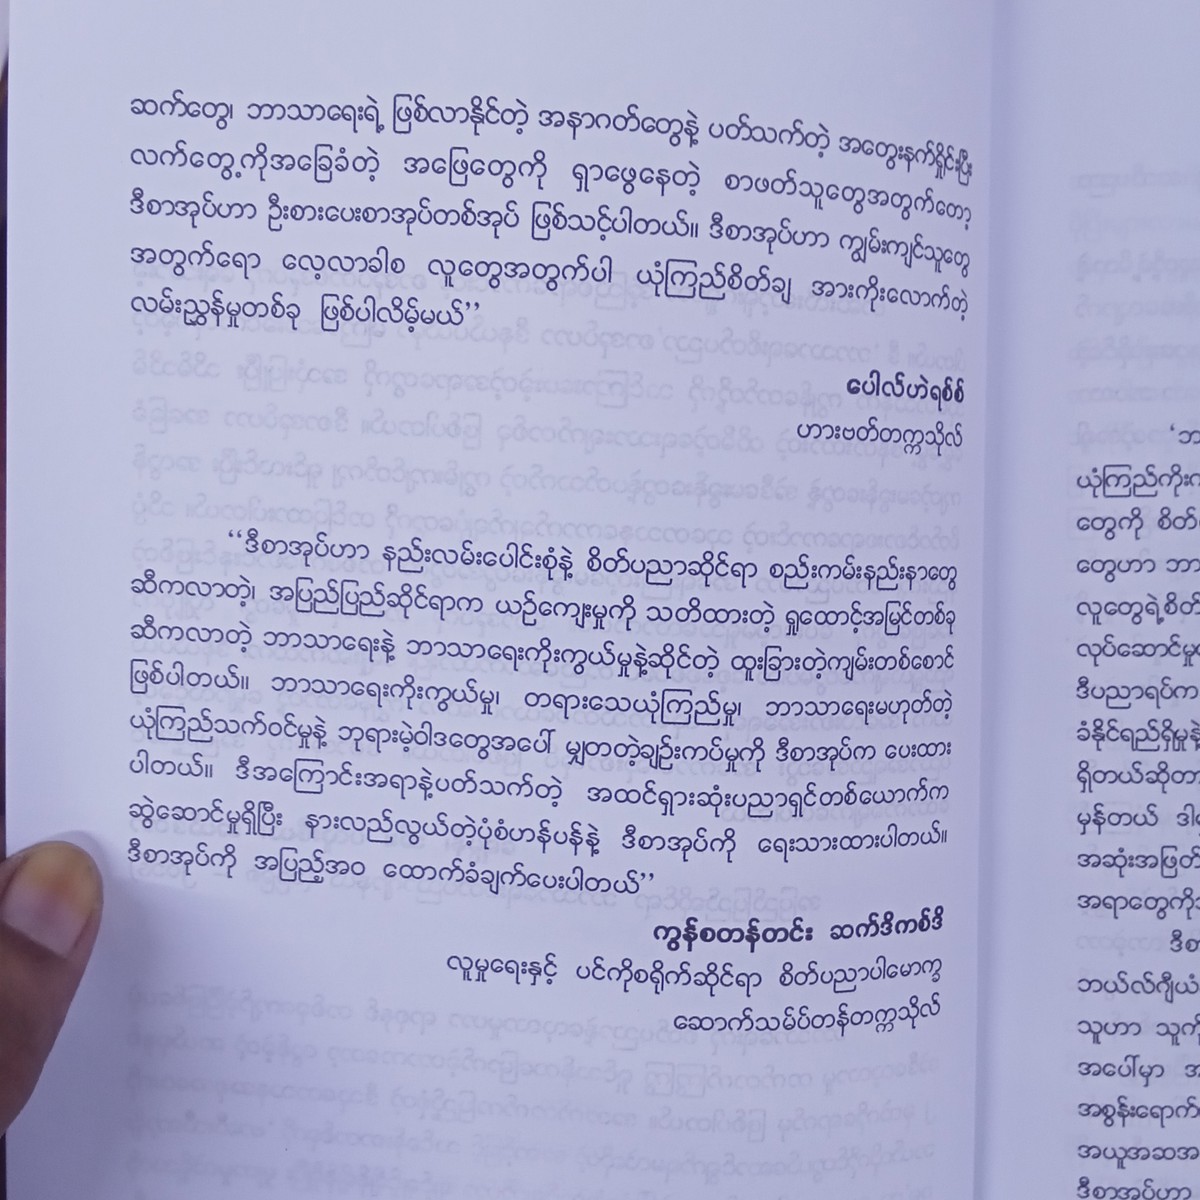 ဆက်တွေ၊ ဘာသာရေးရဲ့ ဖြစ်လာနိုင်တဲ့ အနာဂတ်တွေနဲ့ ပတ်သက်တဲ့ အတွေးနက်ရှိုင်းပြီး
လက်တွေ့ကိုအခြေခံတဲ့ အဖြေတွေကို ရှာဖွေနေတဲ့ စာဖတ်သူတွေအတွက်တော့
ဒီစာအုပ်ဟာ ဦးစားပေးစာအုပ်တစ်အုပ် ဖြစ်သင့်ပါတယ်။ ဒီစာအုပ်ဟာ ကျွမ်းကျင်သူတွေ
အတွက်ရော လေ့လာခါစ လူတွေအတွက်ပါ ယုံကြည်စိတ်ချ အားကိုးလောက်တဲ့
လမ်းညွှန်မှုတစ်ခု ဖြစ်ပါလိမ့်မယ်”
ပေါလ်ဟဲရစ်စ်
ဟားဗတ်တက္ကသိုလ်
“ဒီစာအုပ်ဟာ နည်းလမ်းပေါင်းစုံနဲ့ စိတ်ပညာဆိုင်ရာ စည်းကမ်းနည်းနာတွေ
ဆီကလာတဲ့၊ အပြည်ပြည်ဆိုင်ရာက ယဉ်ကျေးမှုကို သတိထားတဲ့ ရှုထောင့်အမြင်တစ်ခု
ဆီကလာတဲ့ ဘာသာရေးနဲ့ ဘာသာရေးကိုးကွယ်မှုနဲ့ဆိုင်တဲ့ ထူးခြားတဲ့ကျမ်းတစ်စောင်
ဖြစ်ပါတယ်။ ဘာသာရေးကိုးကွယ်မှု၊ တရားသေယုံကြည်မှု၊ ဘာသာရေးမဟုတ်တဲ့
ယုံကြည်သက်ဝင်မှုနဲ့ ဘုရားမဲ့ဝါဒတွေအပေါ် မျှတတဲ့ချဉ်းကပ်မှုကို ဒီစာအုပ်က ပေးထား
ပါတယ်။ ဒီအကြောင်းအရာနဲ့ပတ်သက်တဲ့ အထင်ရှားဆုံးပညာရှင်တစ်ယောက်က
ဆွဲဆောင်မှုရှိပြီး နားလည်လွယ်တဲ့ပုံစံဟန်ပန်နဲ့ ဒီစာအုပ်ကို ရေးသားထားပါတယ်။
ဒီစာအုပ်ကို အပြည့်အဝ ထောက်ခံချက်ပေးပါတယ်”
ကွန်စတန်တင်း ဆက်ဒီကစ်ဒီ
လူမှုရေးနှင့် ပင်ကိုစရိုက်ဆိုင်ရာ စိတ်ပညာပါမောက္ခ
ဆောက်သမ်ပ်တန်တက္ကသိုလ်
‘ဘ
ယုံကြည်ကိုးက
တွေကို စိတ်
တွေဟာ ဘာ
လူတွေရဲ့စိတ်
လုပ်ဆောင်မှု
ဒီပညာရပ်က
ခံနိုင်ရည်ရှိမှုနဲ့
ရှိတယ်ဆိုတာ
မှန်တယ် ဒါ
အဆုံးအဖြတ်
အရာတွေကို
ဒီစာ
ဘယ်လ်ဂျီယံ
သူဟာ သူ
အပေါ်မှာ အ
အစွန်းရောက်
အယူအဆအ
ဒီစာအုပ်ဟာ